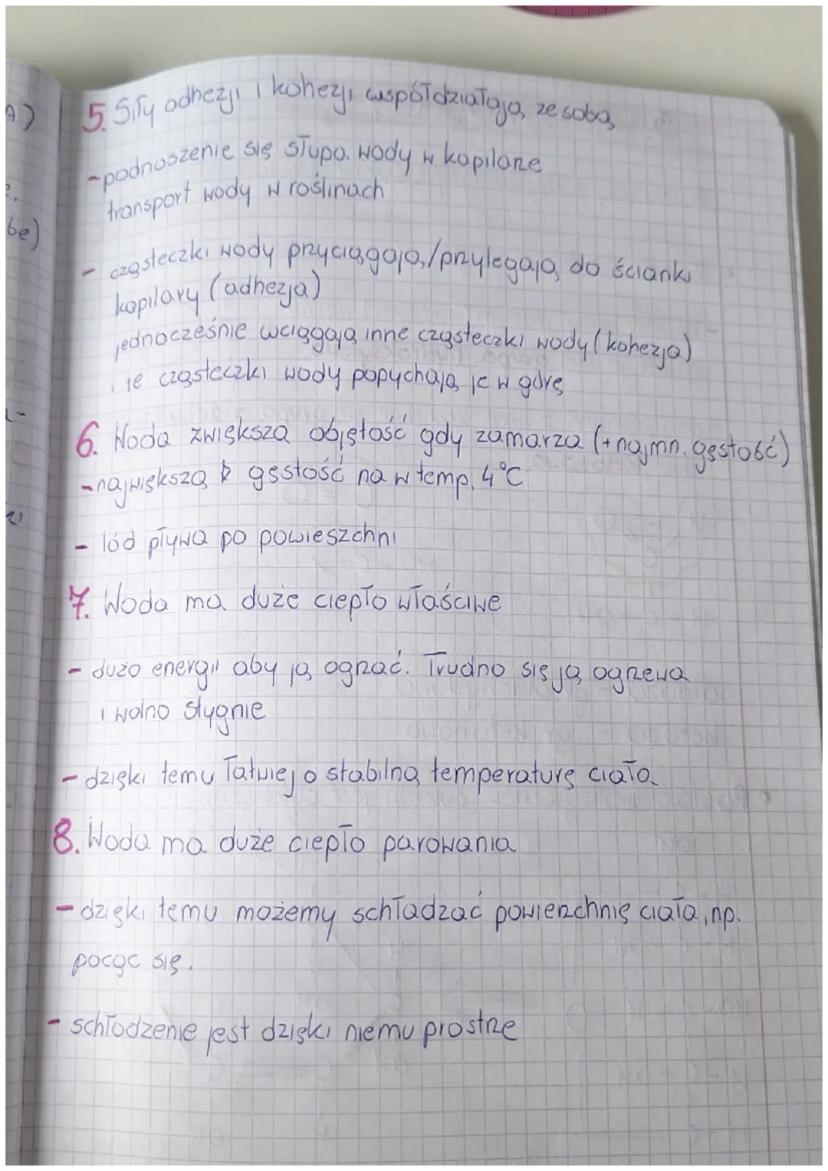 5. Siły adhezji i kohezji współdziałają ze sobą
- podnoszenie się słupa wody w kapilarze
transport wody w roślinach
- cząsteczki wody przyciągają/przylegają do ścianki
kapilary (adhezja)
jednocześnie wciągają inne cząsteczki wody (kohezja)
i te cząsteczki wody popychają je w górę
6. Woda zwiększa objętość gdy zamarza (+ najmn. gęstość)
- największą gęstość na w temp. 4°C
- lód pływa po powieszchni
7. Woda ma duże ciepło właściwe
- dużo energii aby ją ogrzać. Trudno się ją ogrzewa
i wolno stygnie
- dzięki temu łatwiej o stabilną temperaturę ciała
8. Woda ma duże ciepło parowania
- dzięki temu możemy schładzać powierzchnię ciała, np.
pocąc się.
- schłodzenie jest dzięki niemu prostrze
A)
be)